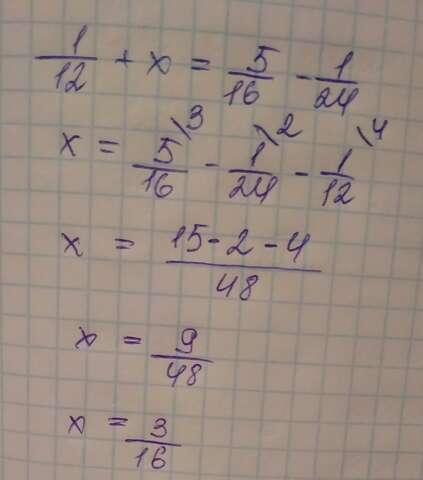 1/12 + x = 5/16 - 1/24
x = 5/16 \3 - 1/24 \2 - 1/12 \4
x = 15-2-4/48
x = 9/48
x = 3/16